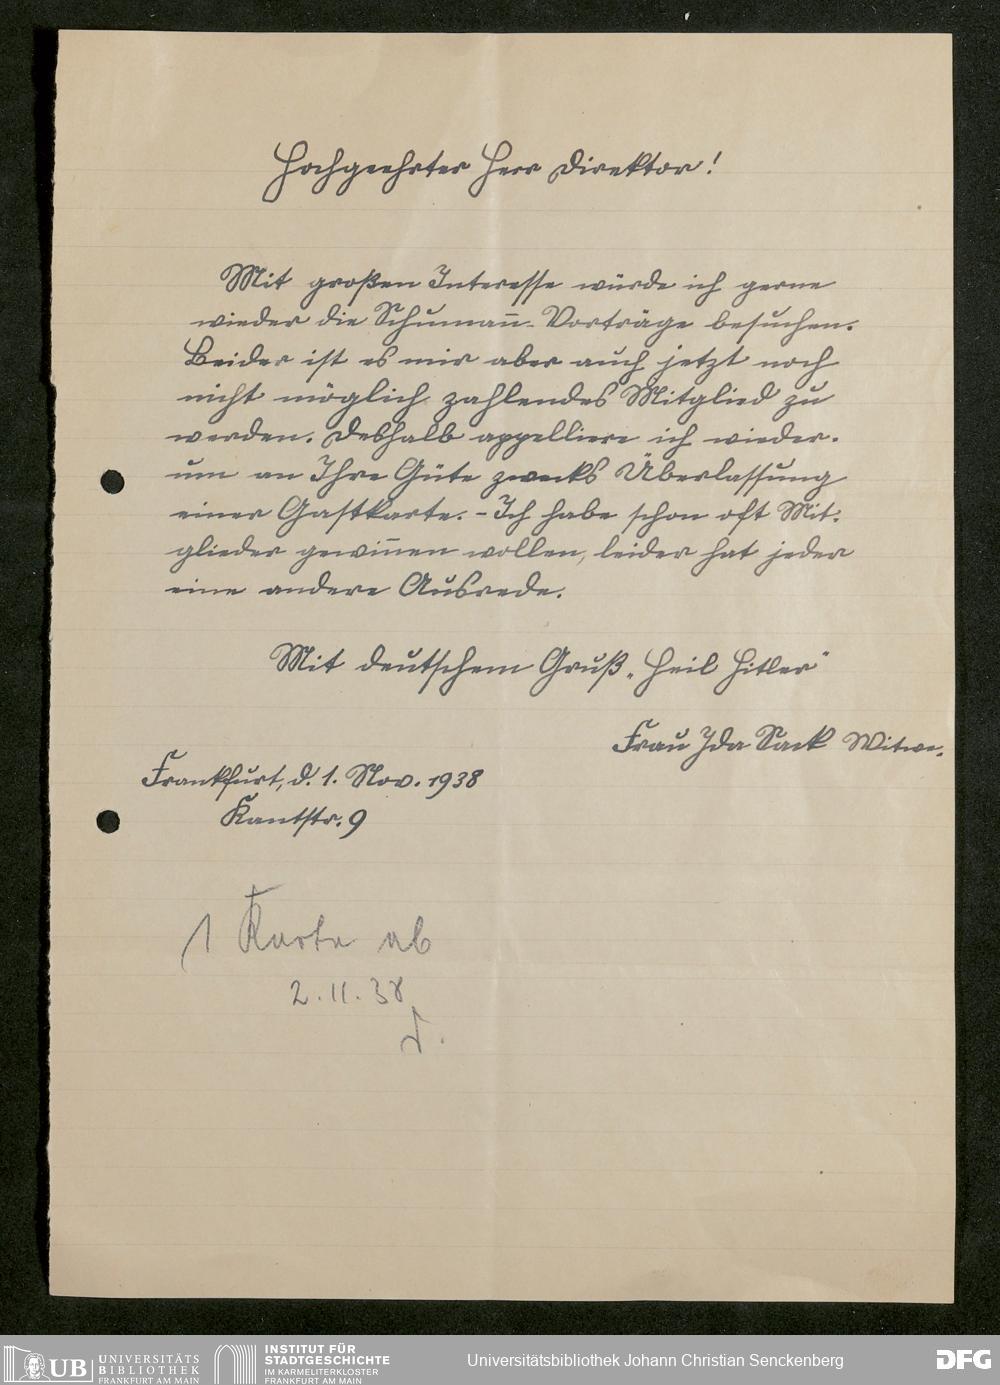 Hochgeehrter Herr Direktor!
Mit großen Interesse würde ich gerne
wieder die Schumañ-Vorträge besuchen.
Leider ist es mir aber auch jetzt noch
nicht möglich zahlendes Mitglied zu
werden. Deshalb appelliere ich wieder-
um an Ihre Güte zwecks Überlassung
einer Gastkarte. - Ich habe schon oft Mit-
glieder gewin̄en wollen, leider hat jeder
eine andere Ausrede.
Mit deutschem Gruß „Heil Hitler"
Frau Ida Sack Witwe.
Frankfurt, d. 1. Nov. 1938
Kantstr. 9
1 Karte ab
2.11.38
UB
UNIVERSITÄTS
BIBLIOTHEK
FRANKFURT AM MAIN
INSTITUT FÜR
STADTGESCHICHTE
IM KARMELITERKLOSTER
FRANKFURT AM MAIN
Universitätsbibliothek Johann Christian Senckenberg
DFG